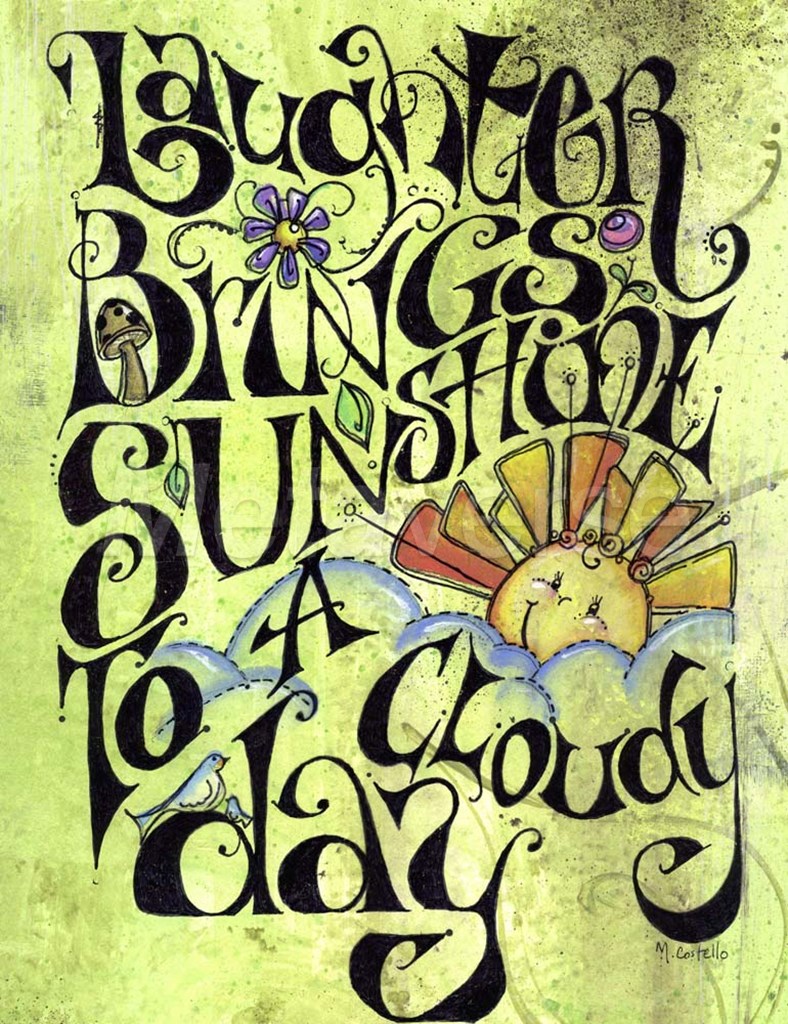 Laughter
Brings
Sunshine
To A Cloudy
day
M. Costello
Metaverse